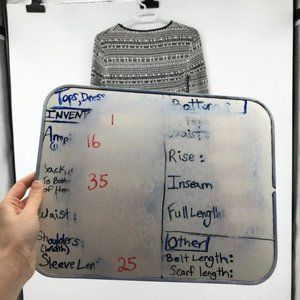 Tops, Dress
INVENT
1
Armp
16
back of
To Bott
of Hem
35
Waist:
Shoulders
(width)
Sleeve Len
25
Bottoms
Waist:
Rise:
Inseam
Full Length:
Other
Belt Length:
Scarf length: